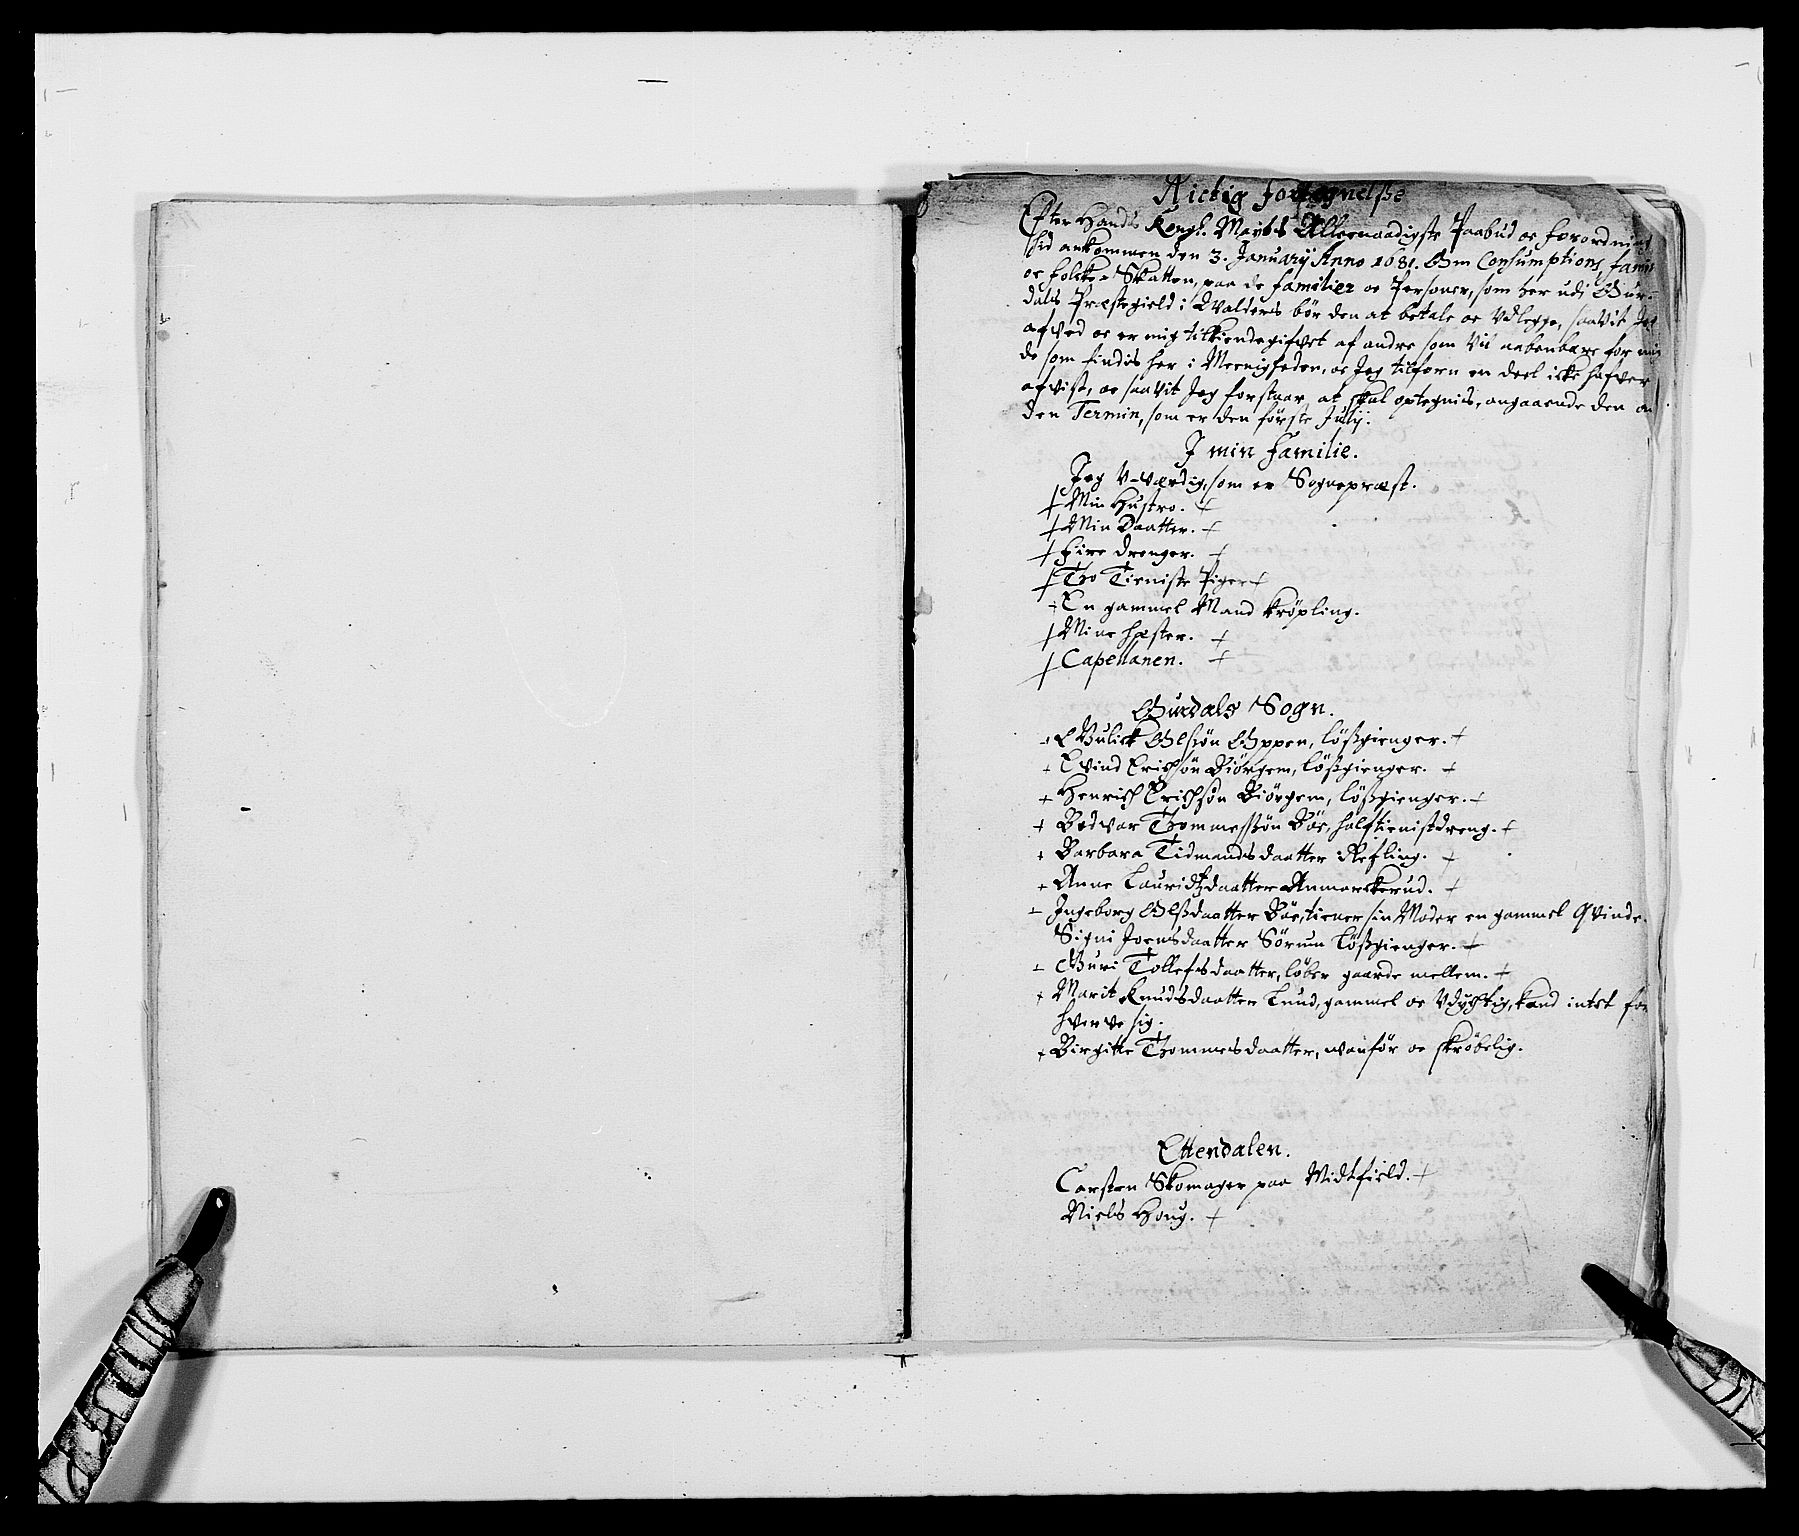 Rictig fortegnelsse
Efter Hands Kongl. Maytts Allernaadigste Paabud oc forordning
hid ankommen den 3. January Anno 1681. Om Consumptions, famil
oc folcke-Skatten, paa de familier oc Personer, som her udi Our-
dals Præstegield i Walders bör den at betale oc Vdlegge, saavit Jeg
afved oc er mig tilkiendegifvet af andre som Vil aabenbare for mig
de som findis her i Menigheden, oc Jeg tilforn en deel icke hafver
afvist, oc saavit Jeg forstaar at skal optegnis, angaaende den an
den Termin, som er den förste Julij.
I min familie.
Jeg V-værdig, som er Sognepræst.
Min Hustro.
Min Daatter.
Fire drenger.
Tho Tieniste Piger
En gammel Mand kröpling.
Mine hester.
Capellanen.
Ourdals Sogn.
Gulick Olssön Oppen, lössgienger.
Evind Erichsön Biörgem, lössgienger.
Henrich Erichsön Biörgem, lössgienger.
Bodvar Thommessön Böe, halftienistdreng.
Barbara Tidmandsdaatter Refling.
Anne Lauridtzdaatter Anmarckerud.
Ingeborg Olssdaatter Böe, tiener sin Moder en gammel Qvinde.
Signi Joensdaatter Sörum Lössgienger.
Guri Tollefsdaatter, löber gaarde mellem.
Marit Knudsdaatter Lund, gammel oc Vdychtig, kand intet for
hverve sig.
Birgitte Thommesdaatter, wanför oc skröbelig.
Ettendalen.
Carsten Skomager paa Midtfield.
Niels Houg.